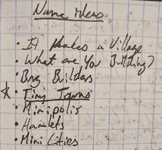 Name Ideas
• It Makes a Village
• What are You Building?
• Busy Builders
* • Tiny Towns
• Minipolis
• Hamlets
• Mini Cities